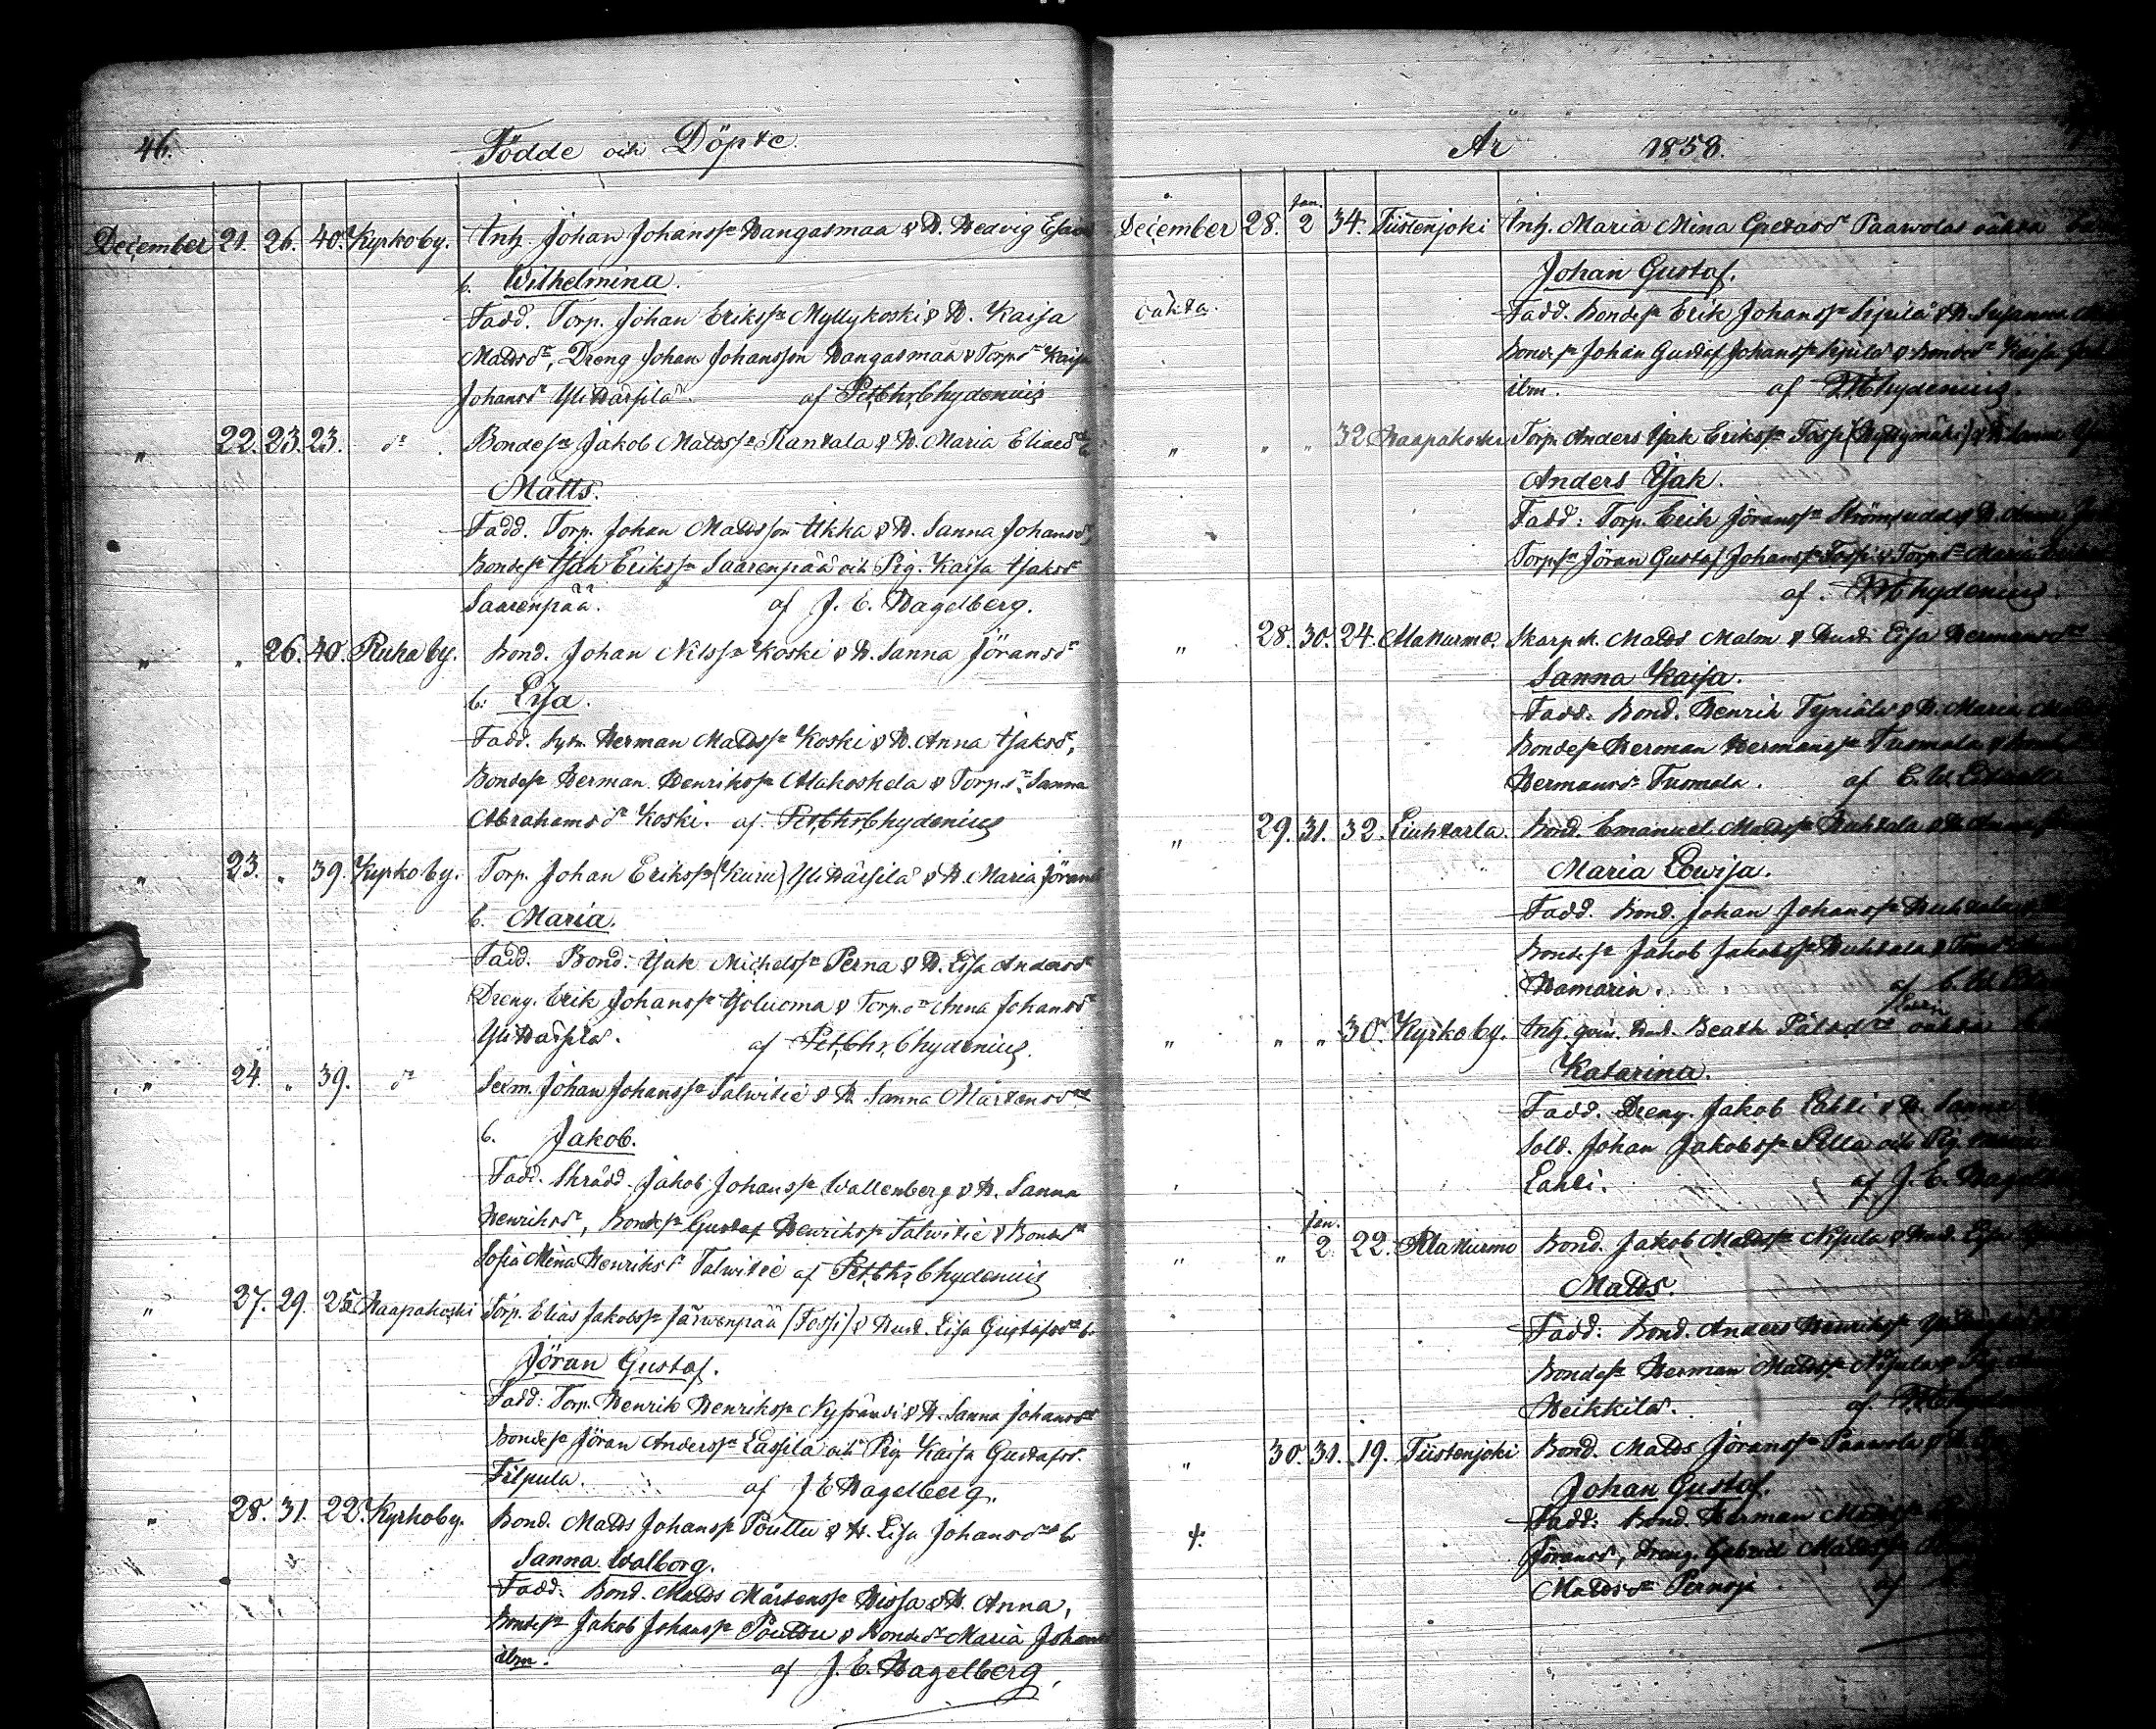 46.
Födde och Döpte
December 21. 26. 40. Kyrkoby. Inh. Johan Johanss: Hangasmaa & H. Hedvig
b. Wilhelmina.
Fadd. Torp. Johan Erikss: Myllykoski & H. Kaisa
Mattsdr, Dreng Johan Johansson Hangasmaa & Torpdr Kaisa
Johansdr Yli Härsilä. af Pet. Chr. Chydenius
" 22. 23. 23. dr Bondesn Jakob Mattss: Rantala & H. Maria Eliaedr b.
Matts.
Fadd. Torp. Johan Mattsson Ukha & H. Sanna Johansdr
Bondesn Isak Erikss: Saarenpää och Pig. Kaisa Isaksdr
Saarenpää. af J. E. Hagelberg.
" " 26. 40. Ruha by. Bond. Johan Nilss: Koski & H. Sanna Jöransdr
b. Lisa.
Fadd. Sytn. Herman Mattss: Koski & H. Anna Isaksdr,
Bondesn Herman Henrikss: Alakoskela & Torp.dr Sanna
Abrahamsdr Koski. af Pet. Chr. Chydenius
" 23. " 39. Kyrkoby. Torp. Johan Erikss: (Kuru) Yli Härsilä & H. Maria Jöransd
b. Maria.
Fadd. Bond. Isak Michelss: Perna & H. Lisa Andersdr
Dreng. Erik Johanss: Isoluoma & Torp.dr Anna Johansdr
Yli Härsilä. af Pet. Chr. Chydenius.
" 24. " 39. dr Sexm. Johan Johanss: Talwitie & H. Sanna Mårtensdr
b. Jakob.
Fadd. Skrädd. Jakob Johanss: Wallenberg & H. Sanna
Henriksdr, Bondesn Gustaf Henrikss: Talwitie & Bondedr
Sofia Mina Henriksdr Talwitie af Pet. Chr. Chydenius
" 27. 29. 25. Haapakoski Torp. Elias Jakobss: Järwenpää (Tossi) & Hust. Lisa Gustafsdr b.
Jöran Gustaf.
Fadd: Torp. Henrik Henrikss: Nyrändi & H. Sanna Johansdr
Bondesn Jöran Anderss: Lassila och Pig. Kaisa Gustafsd.
Filpula. af J E Hagelberg.
" 28. 31. 22. Kyrkoby. Bond. Matts Johanss: Pouttu & H. Lisa Johansdr b
Sanna Walborg.
Fadd. Bond. Matts Mårtenss: Hissa & H. Anna,
Bondesn Jakob Johanss: Pouttu & Bondedr Maria Johans
ibm. af J. E. Hagelberg.
År 1858.
December 28. Jan. 2 34. Tiistenjoki Inh. Maria Mina Gretasdr Paawolas oäkta
Johan Gustaf.
oäkta. Fadd. Bondesn Erik Johanss: Sipilä & H. Susanna
Bondesn Johan Gustaf Johanss: Sipilä & Bondedr Kaisa
ibm. af P. C. Chydenius.
" " " 32 Haapakoski Torp. Anders Isak Erikss: Tossi (Myllymäki) & H. Sanna
Anders Isak.
Fadd: Torp. Erik Jöranss: Strömsudd & H. Anna
Torpsn Jöran Gustaf Johanss: Tossi & Torpdr Maria
af P. C. Chydenius.
" 28. 30. 24. Alanurmo. Skarp sk. Matts Malm & Hust. Lisa Hermansdr
Sanna Kaisa.
Fadd. Bond. Henrik Tyniälä & H. Maria
Bondesn Herman Hermanss: Tuomala &
Hermansdr Tuomala. af C. W.
" 29. 31. 32. Liuhtarla. Bond. Emanuel Mattss: Huhtala & H.
Maria Lowisa.
Fadd. Bond. Johan Johanss: Huhtala
Bondesn Jakob Jakobss: Huhtala &
Hamarin. af C. W.
" " " 30. Kyrkoby. Inh. qvin. Hust. Beata Pålsdr oäkta
Katarina.
Fadd. Dreng. Jakob Lahti & H. Sanna
Sold. Johan Jakobss: Pilla och Pig Maria
Lahti. af J. E. Hagel
" " Jan. 2 22. Alanurmo Bond. Jakob Mattss: Nisula & Hust. Lisa
Matts.
Fadd: Bond. Anders Henrikss:
Bondesn Herman Mattss: Nisula & Pig
Heikkilä. af P. C. Chydenius
" 30. 31. 19. Tiistenjoki Bond. Matts Jöranss: Paawola & H.
Johan Gustaf.
Fadd: Bond. Herman Mattss:
Jöransd, Dreng. Gabriel Mattss:
Mattsdr Pernaja. af